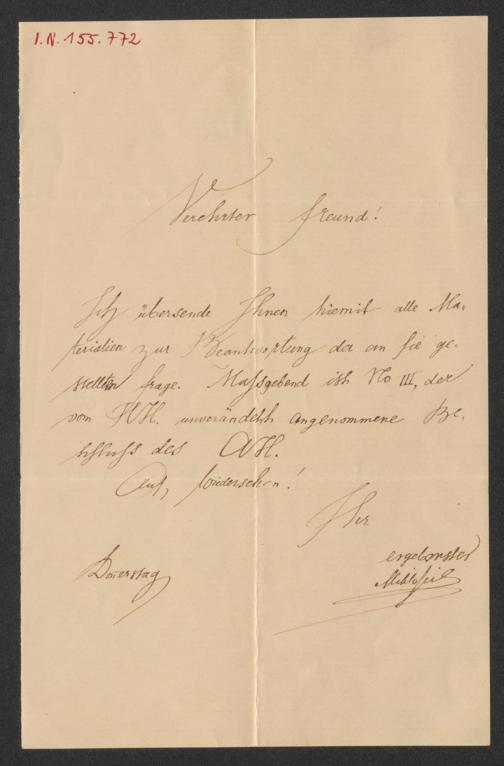 I.N. 155.772
Verehrter Freund!
Ich übersende Ihnen hiemit alle Ma-
terialien zur Beantwortung der an sie ge-
stellten Frage. Maßgebend ist No III, der
vom HH. unverändert angenommene Be-
schluß des AH.
Auf Wiedersehen!
Ihr
ergebenster
Miklosich
Donerstag